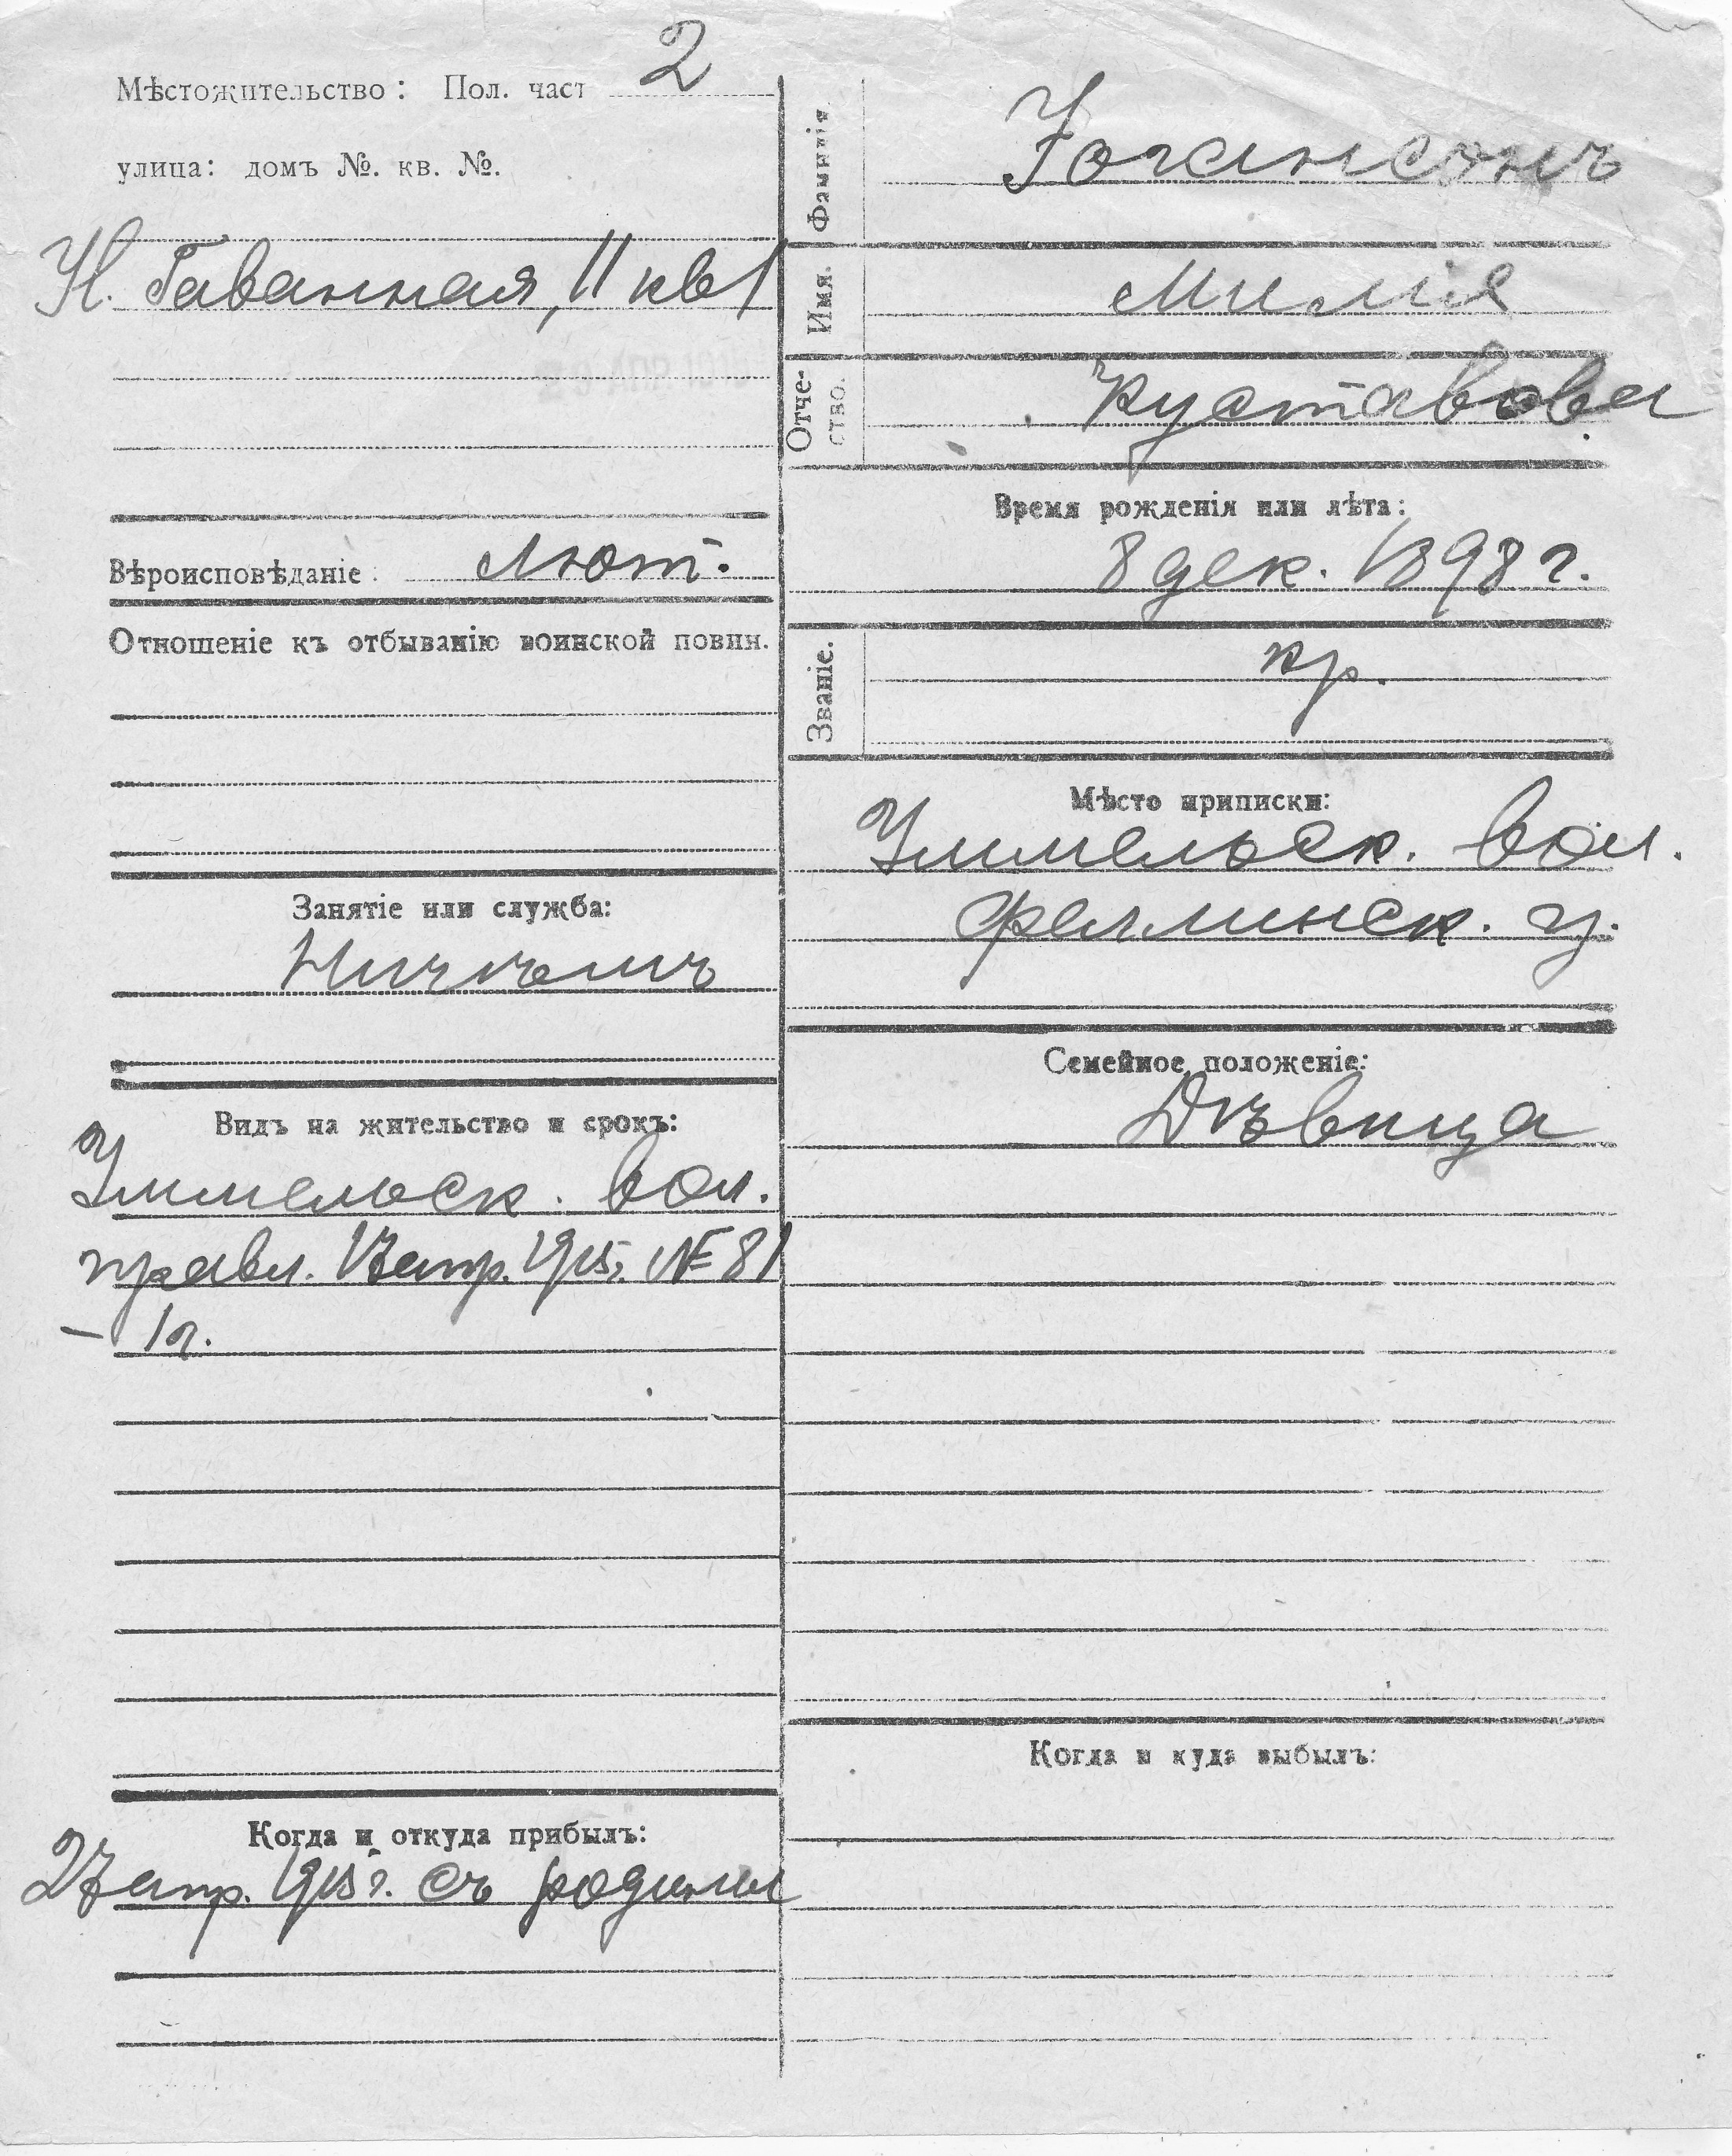 Мѣстожительство: Пол. част 2
улица: домъ №. кв. №.
Н. Гаванная, 11 кв 1
Вѣроисповѣданіе: Лют.
Отношеніе къ отбыванію воинской повин.
Занятіе или служба:
Видъ на жительство и срокъ:
Уммельск. вол.
правл. 13 апр. 1915, № 81
– 1 г.
Когда и откуда прибылъ:
27 апр. 1915 г. съ родины
Фамилія
Іогансонъ
Имя.
Милія
Отче-
ство.
Густавова
Время рожденія или лѣта:
8 дек. 1898 г.
Званіе.
кр.
Мѣсто приписки:
Уммельск. вол.
Феллинск. у.
Семейное положеніе:
Дѣвица
Когда и куда выбылъ: